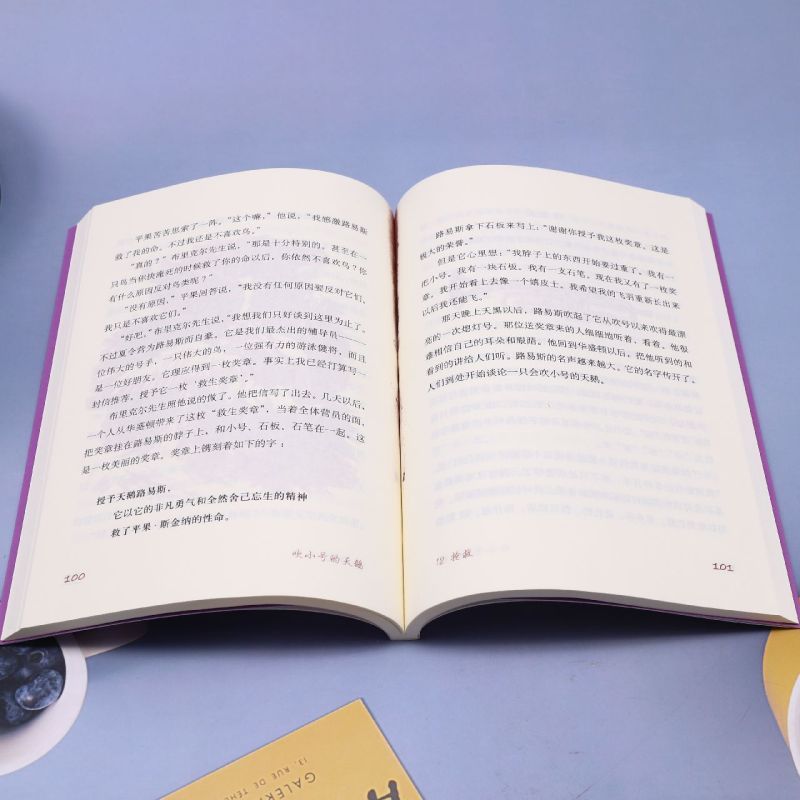 苹果苦苦思索了一阵。“这个嘛，”他说，“我感激路易斯
救了我的命。不过我还是不喜欢鸟。”
“真的？”布里克尔先生说，“那是十分特别的。甚至在一
只鸟当你快淹死的时候救了你的命以后，你依然不喜欢鸟？你
有什么原因反对鸟类呢？”
“没有原因，”苹果回答说，“我没有任何原因要反对它们。
我只是不喜欢它们。”
“好吧，”布里克尔先生说，“我想我们只好谈到这里为止了。
不过夏令营为路易斯而自豪。它是我们最杰出的辅导员——
位伟大的号手，一只伟大的鸟，一位强有力的游泳健将，而且
是一位好朋友。它理应得到一枚奖章。事实上我已经打算写一
封信推荐，授予它一枚‘救生奖章’。”
布里克尔先生照他说的做了。他把信写了出去。几天以后，
一个人从华盛顿带来了这枚“救生奖章”，当着全体营员的面，
把奖章挂在路易斯的脖子上，和小号、石板、石笔在一起。这
是一枚美丽的奖章。奖章上镌刻着如下的字：
授予天鹅路易斯，
它以它的非凡勇气和全然舍己忘生的精神
救了平果·斯金纳的性命。
吹小号的天鹅
100
路易斯拿下石板来写上：“谢谢你授予我这枚奖章。这是
极大的荣誉。”
但是它心里想：“我脖子上的东西开始要过重了。我有一
把小号。我有一块石板。我有一支石笔。现在我又有了一枚奖
章。我开始看上去像一个嬉皮士。我希望我的飞羽重新长出来
以后我还能飞。”
那天晚上天黑以后，路易斯吹起了它从吹号以来吹得最漂
亮的一次熄灯号。那位送奖章来的人细细地听着，看着。他很
难相信自己的耳朵和眼睛。他回到华盛顿以后，把他听到的和
看到的讲给人们听。路易斯的名声越来越大。它的名字传开了。
人们到处开始谈论一只会吹小号的天鹅。
12 抢救
101
GALER
13, RUE DE TEHE